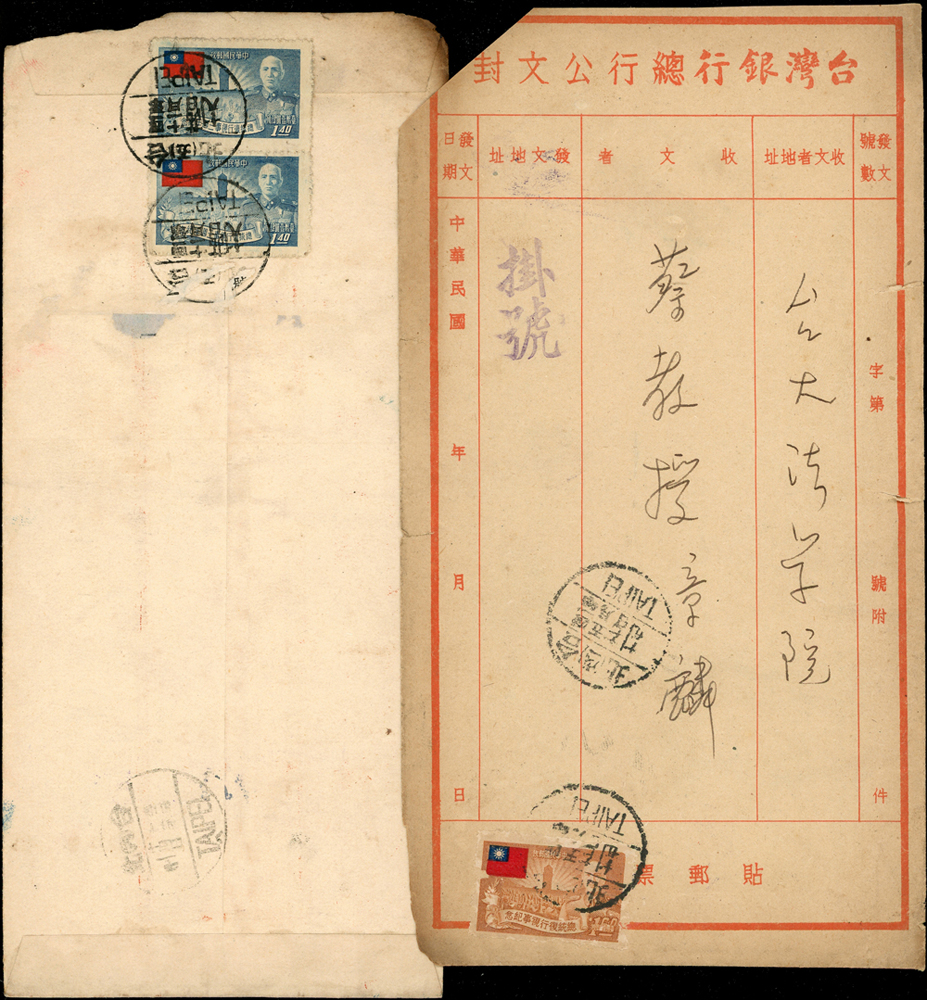 台灣銀行總行公文封
發文號數
收文者地址
收文者
發文地址
發文日期
字第
號附
件
台大法学院
蔡教授章麟
掛號
中華民國
年
月
日
貼郵票
中華民國郵政
1.40
TAIPEI
中華民國郵政
1.40
TAIPEI
TAIPEI
TAIPEI
TAIPEI
總統復行視事紀念